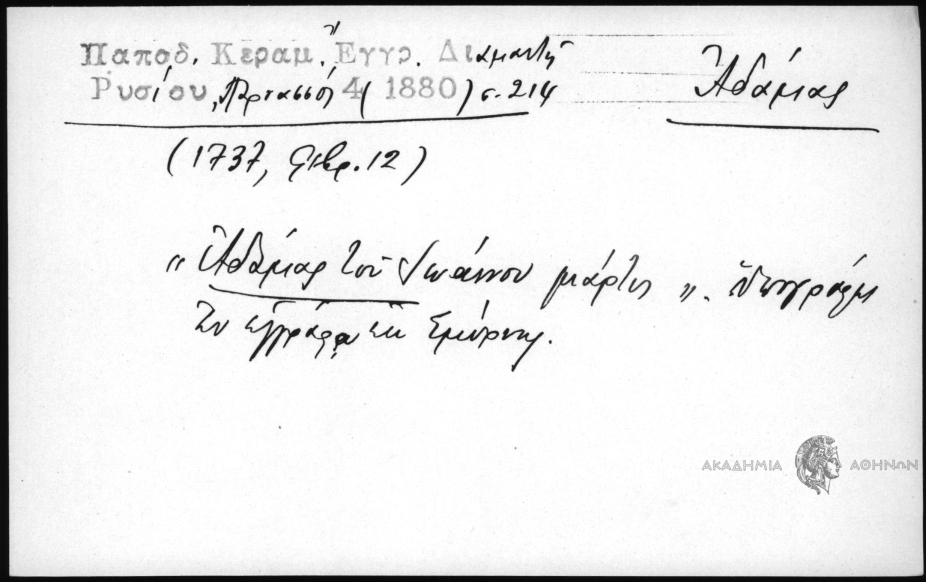 Παποδ. Κεραμ. Ἔγγρ. Διαμαντῆ
Ρυσίου, Παρνασσός 4 (1880) σ. 214
Ἀδάμιας
(1737, Φεβρ. 12)
„ Ἀδάμιας τοῦ Ἰωάννου μάρτυς „. ὑπογράφει
ἐν ἐγγράφῳ ἐκ Σμύρνης.
ΑΚΑΔΗΜΙΑ ΑΘΗΝΩΝ